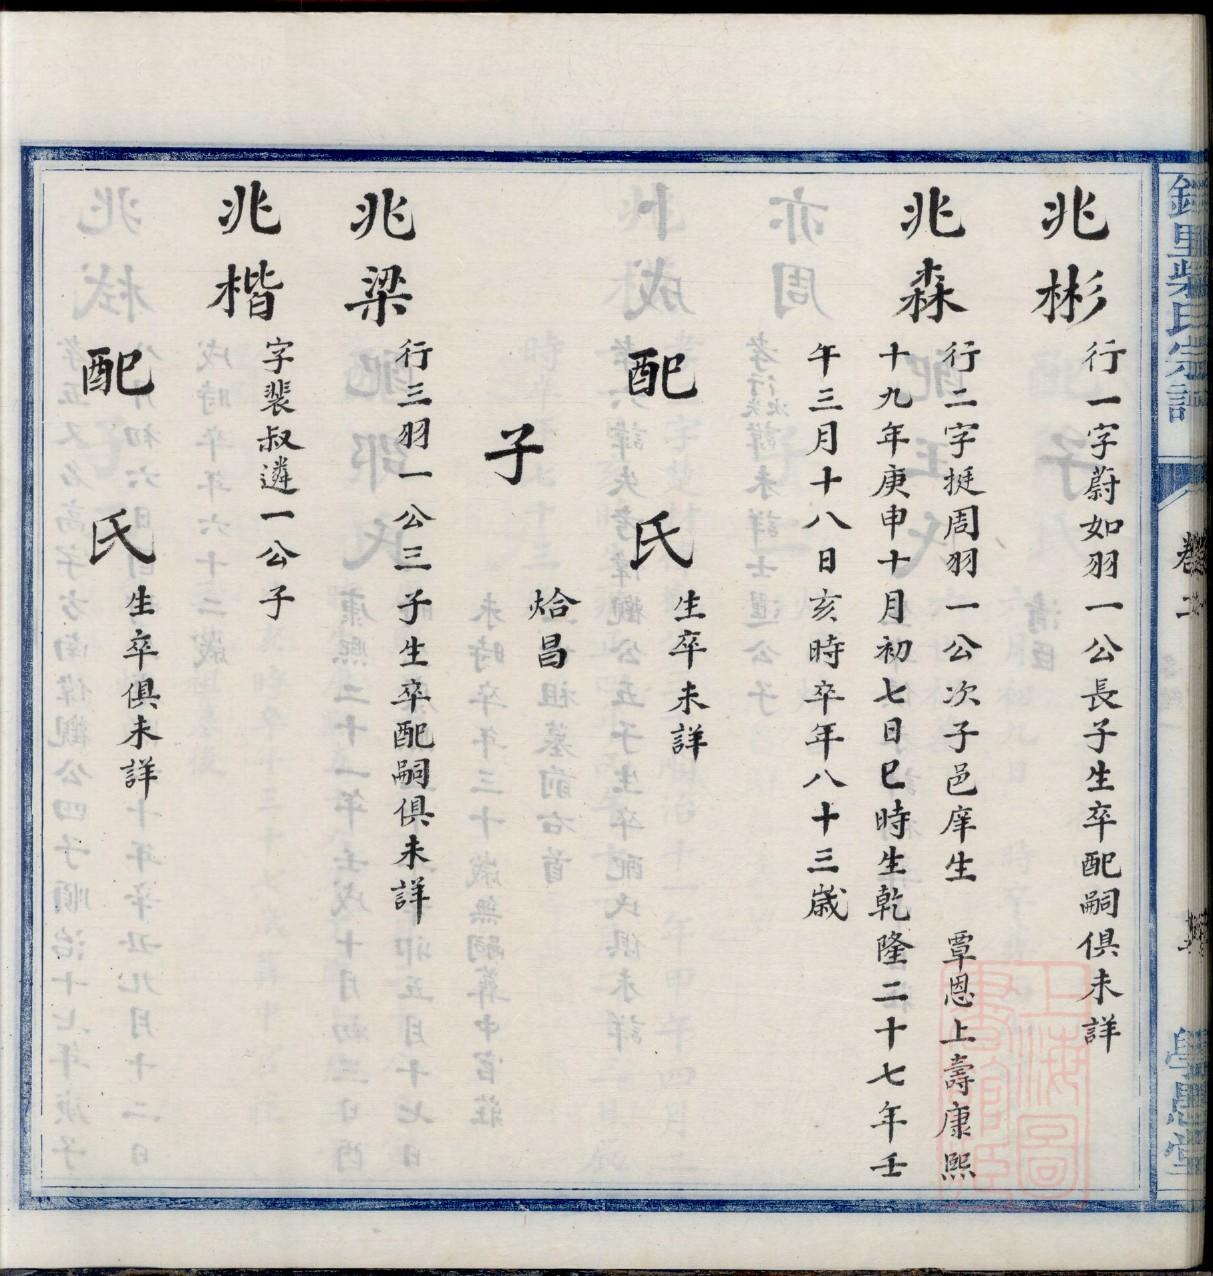 兆彬
行一字蔚如羽一公長子生卒配嗣俱未詳
兆森
行二字挺周羽一公次子邑庠生　覃恩上壽康熙
十九年庚申十月初七日巳時生乾隆二十七年壬
午三月十八日亥時卒年八十三歲
配　氏
生卒未詳
子
烚昌
兆梁
行三羽一公三子生卒配嗣俱未詳
兆楷
字裴叔遴一公子
配　氏
生卒俱未詳
里柴氏宗譜
卷二
學愚堂
上海圖書館藏